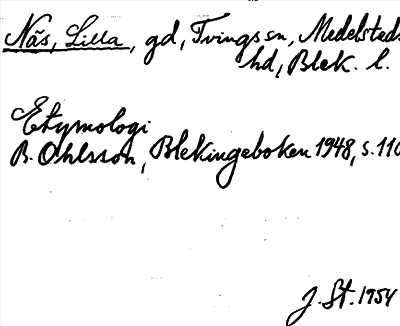 Näs, Lilla, gd, Tvings sn, Medelsteds
hd, Blek. l.
Etymologi
B. Ohlsson, Blekingeboken 1948, s. 110
J. St. 1954